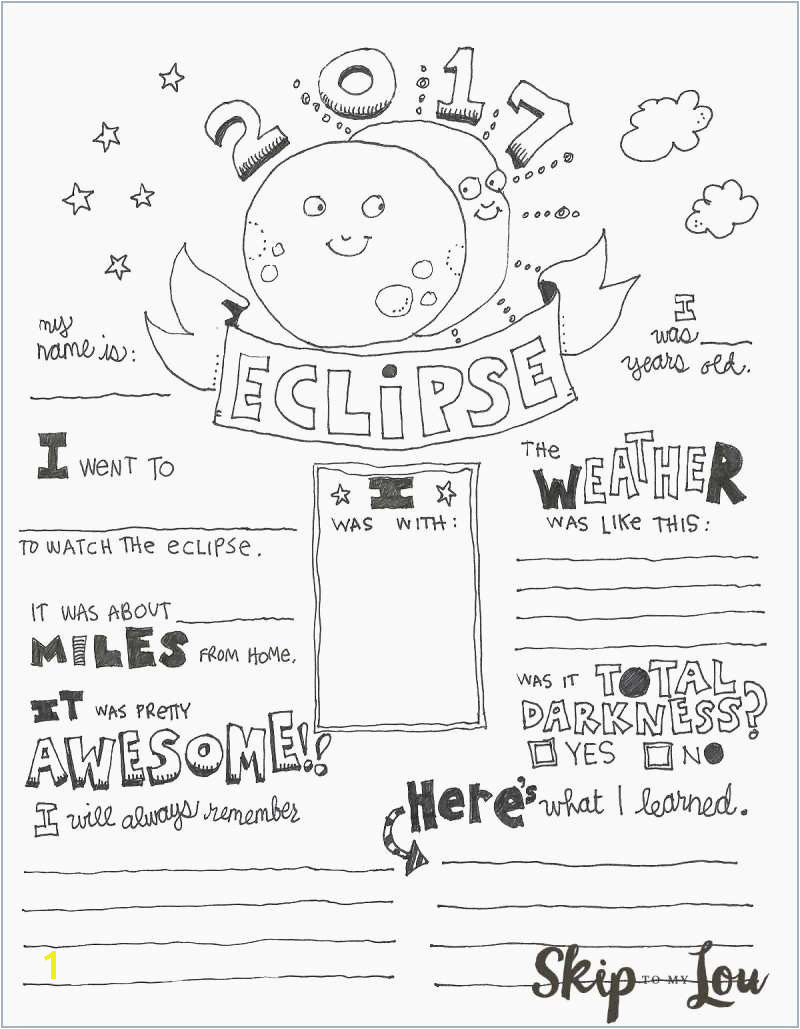 2017
ECLIPSE
my
name is:
I
was
years old.
I WENT TO
TO WATCH THE ECLIPSE.
IT WAS ABOUT
MILES FROM HOME.
IT WAS PRETTY
AWESOME!!
I will always remember
I
WAS WITH:
THE
WEATHER
WAS LIKE THIS:
WAS IT TOTAL
DARKNESS?
YES NO
Here's what I learned.
1
Skip TO MY Lou